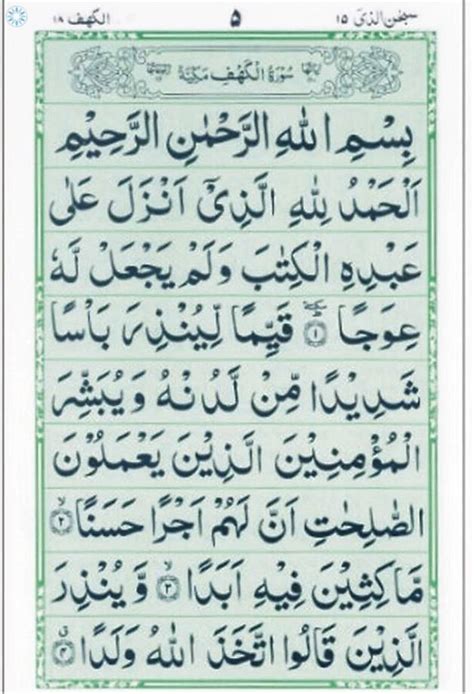 سبحٰن الذیٓ ١٥ ٥ الكهف ١٨
سُوْرَةُ الْكَهْفِ مَكِّيَّةٌ
بِسْمِ اللهِ الرَّحْمٰنِ الرَّحِيْمِ
اَلْحَمْدُ لِلّٰهِ الَّذِيْٓ اَنْزَلَ عَلٰى
عَبْدِهِ الْكِتٰبَ وَلَمْ يَجْعَلْ لَّهٗ
عِوَجًا ۜ ١ قَيِّمًا لِّيُنْذِرَ بَاْسًا
شَدِيْدًا مِّنْ لَّدُنْهُ وَيُبَشِّرَ
الْمُؤْمِنِيْنَ الَّذِيْنَ يَعْمَلُوْنَ
الصّٰلِحٰتِ اَنَّ لَهُمْ اَجْرًا حَسَنًا ۙ ٢
مَّاكِثِيْنَ فِيْهِ اَبَدًا ۙ ٣ وَّيُنْذِرَ
الَّذِيْنَ قَالُوا اتَّخَذَ اللهُ وَلَدًا ۗ ٤